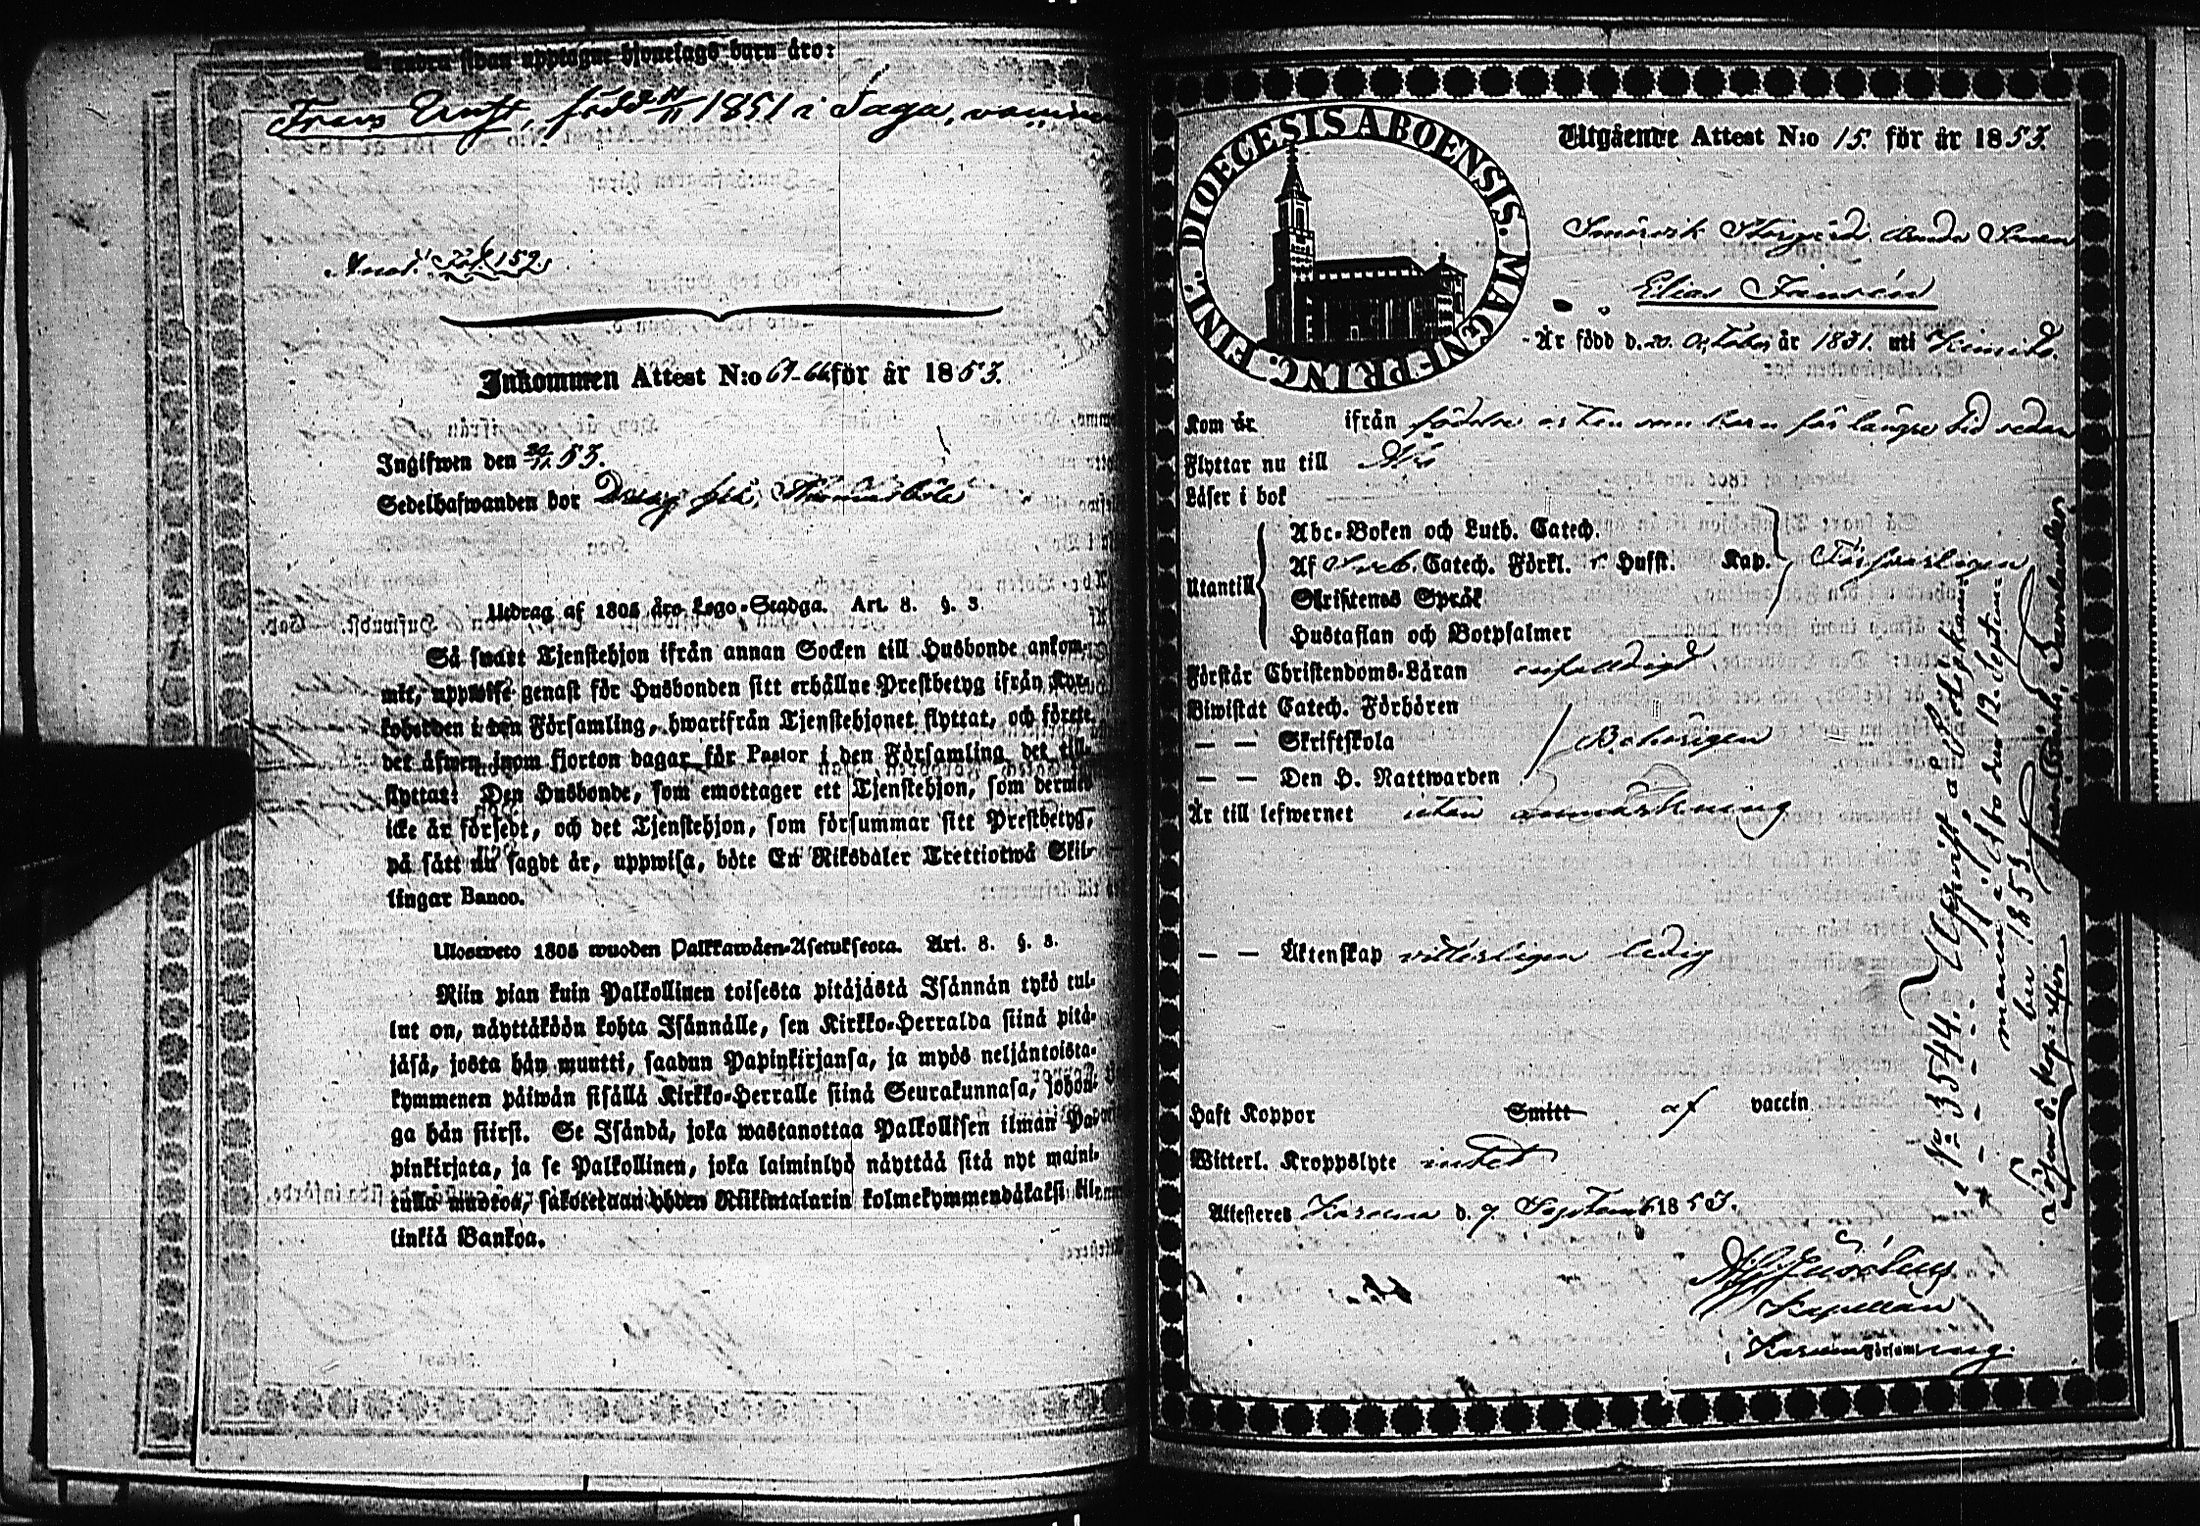 å andra sidan upptagne hjonelags barn äro:
Frans Ernst, född 1851 i Sagu, vaccin
Anot. Fol. 159.
Inkommen Attest N:o 67-66 för år 1853.
Ingifwen den 53.
Sedelhafwanden bor Thomasböle
Utdrag af 1805 års Lego-Stadga. Art. 8. §. 3.
Så snart Tjenstehjon ifrån annan Socken till Husbonde ankom-
mit, uppwise genast för Husbonden sitt erhållne Prestbetyg ifrån Kyr-
koherden i den Församling, hwarifrån Tjenstehjonet flyttat, och förete
det äfwen inom fjorton dagar för Pastor i den Församling det till-
flyttat: Den Husbonde, som emottager ett Tjenstehjon, som dermed
icke är försedt, och det Tjenstehjon, som försummar sitt Prestbetyg,
på sätt nu sagdt är, uppwisa, böte En Riksdaler Trettiotwå Skil-
lingar Banco.
Ulosweto 1805 wuoden Palkkawäen-Asetuksesta. Art. 8. §. 3.
Niin pian kuin Palkollinen toisesta pitäjästä Isännän tykö tul-
lut on, näyttäköön kohta Isännälle, sen Kirkko-Herralda siinä pitä-
jäsä, josta hän muutti, saadun Papinkirjansa, ja myös neljäntoista-
kymmenen päiwän sisällä Kirkko-Herralle siinä Seurakunnasa, johon-
ga hän siirsi. Se Isändä, joka wastanottaa Palkollisen ilman Pa-
pinkirjata, ja se Palkollinen, joka laiminlyö näyttää sitä nyt maini-
tulla muodoa, sakotetaan yhden Riikintalarin kolmekymmendäkaksi kil-
linkiä Bankoa.
FINL. DIOECESIS ABOENSIS. MAGNI PRINC.
Utgående Attest N:o 15. för år 1853.
Elias Jansén
Är född d. 20. October år 1831. uti Kimito
Kom år ifrån födelse orten som barn för längre tid sedan
Flyttar nu till Åbo
Läser i bok
Utantill
Abc-Boken och Luth. Catech.
Af Sveb. Catech. Förkl. Husst. Kap. Försvarligen
Skriftenes Språk
Hustaflan och Botpsalmer
Förstår Christendoms-Läran enfaldigt
Biwistat Catech. Förhören
— — Skriftskola Behörigen
— — Den H. Nattwarden
Är till lefwernet utan anmärkning
— — Äktenskap vitterligen ledig
Haft Koppor Smitt af vaccin
Witterl. Kroppslyte intet
Attesteres Karuna d. 9 September 1853.
Kapellan
Karuna Församling.
N:o 3544. Uppvist å Poliskam-
maren i Åbo den 12 Septem-
ber 1853.
Lösen 6. kop. silfver